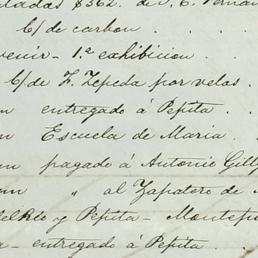 ladas $362. de J. E. Fernan
C/ de carbon . .
venir - 1.ª exhibicion . .
C/ de Z. Zepeda por velas .
entregado á Pepita . .
Escuela de Maria . .
pagado á Antonio Gilly
" al Zapatero de
y Pepita - Montepi
- entregado á Pepita . .